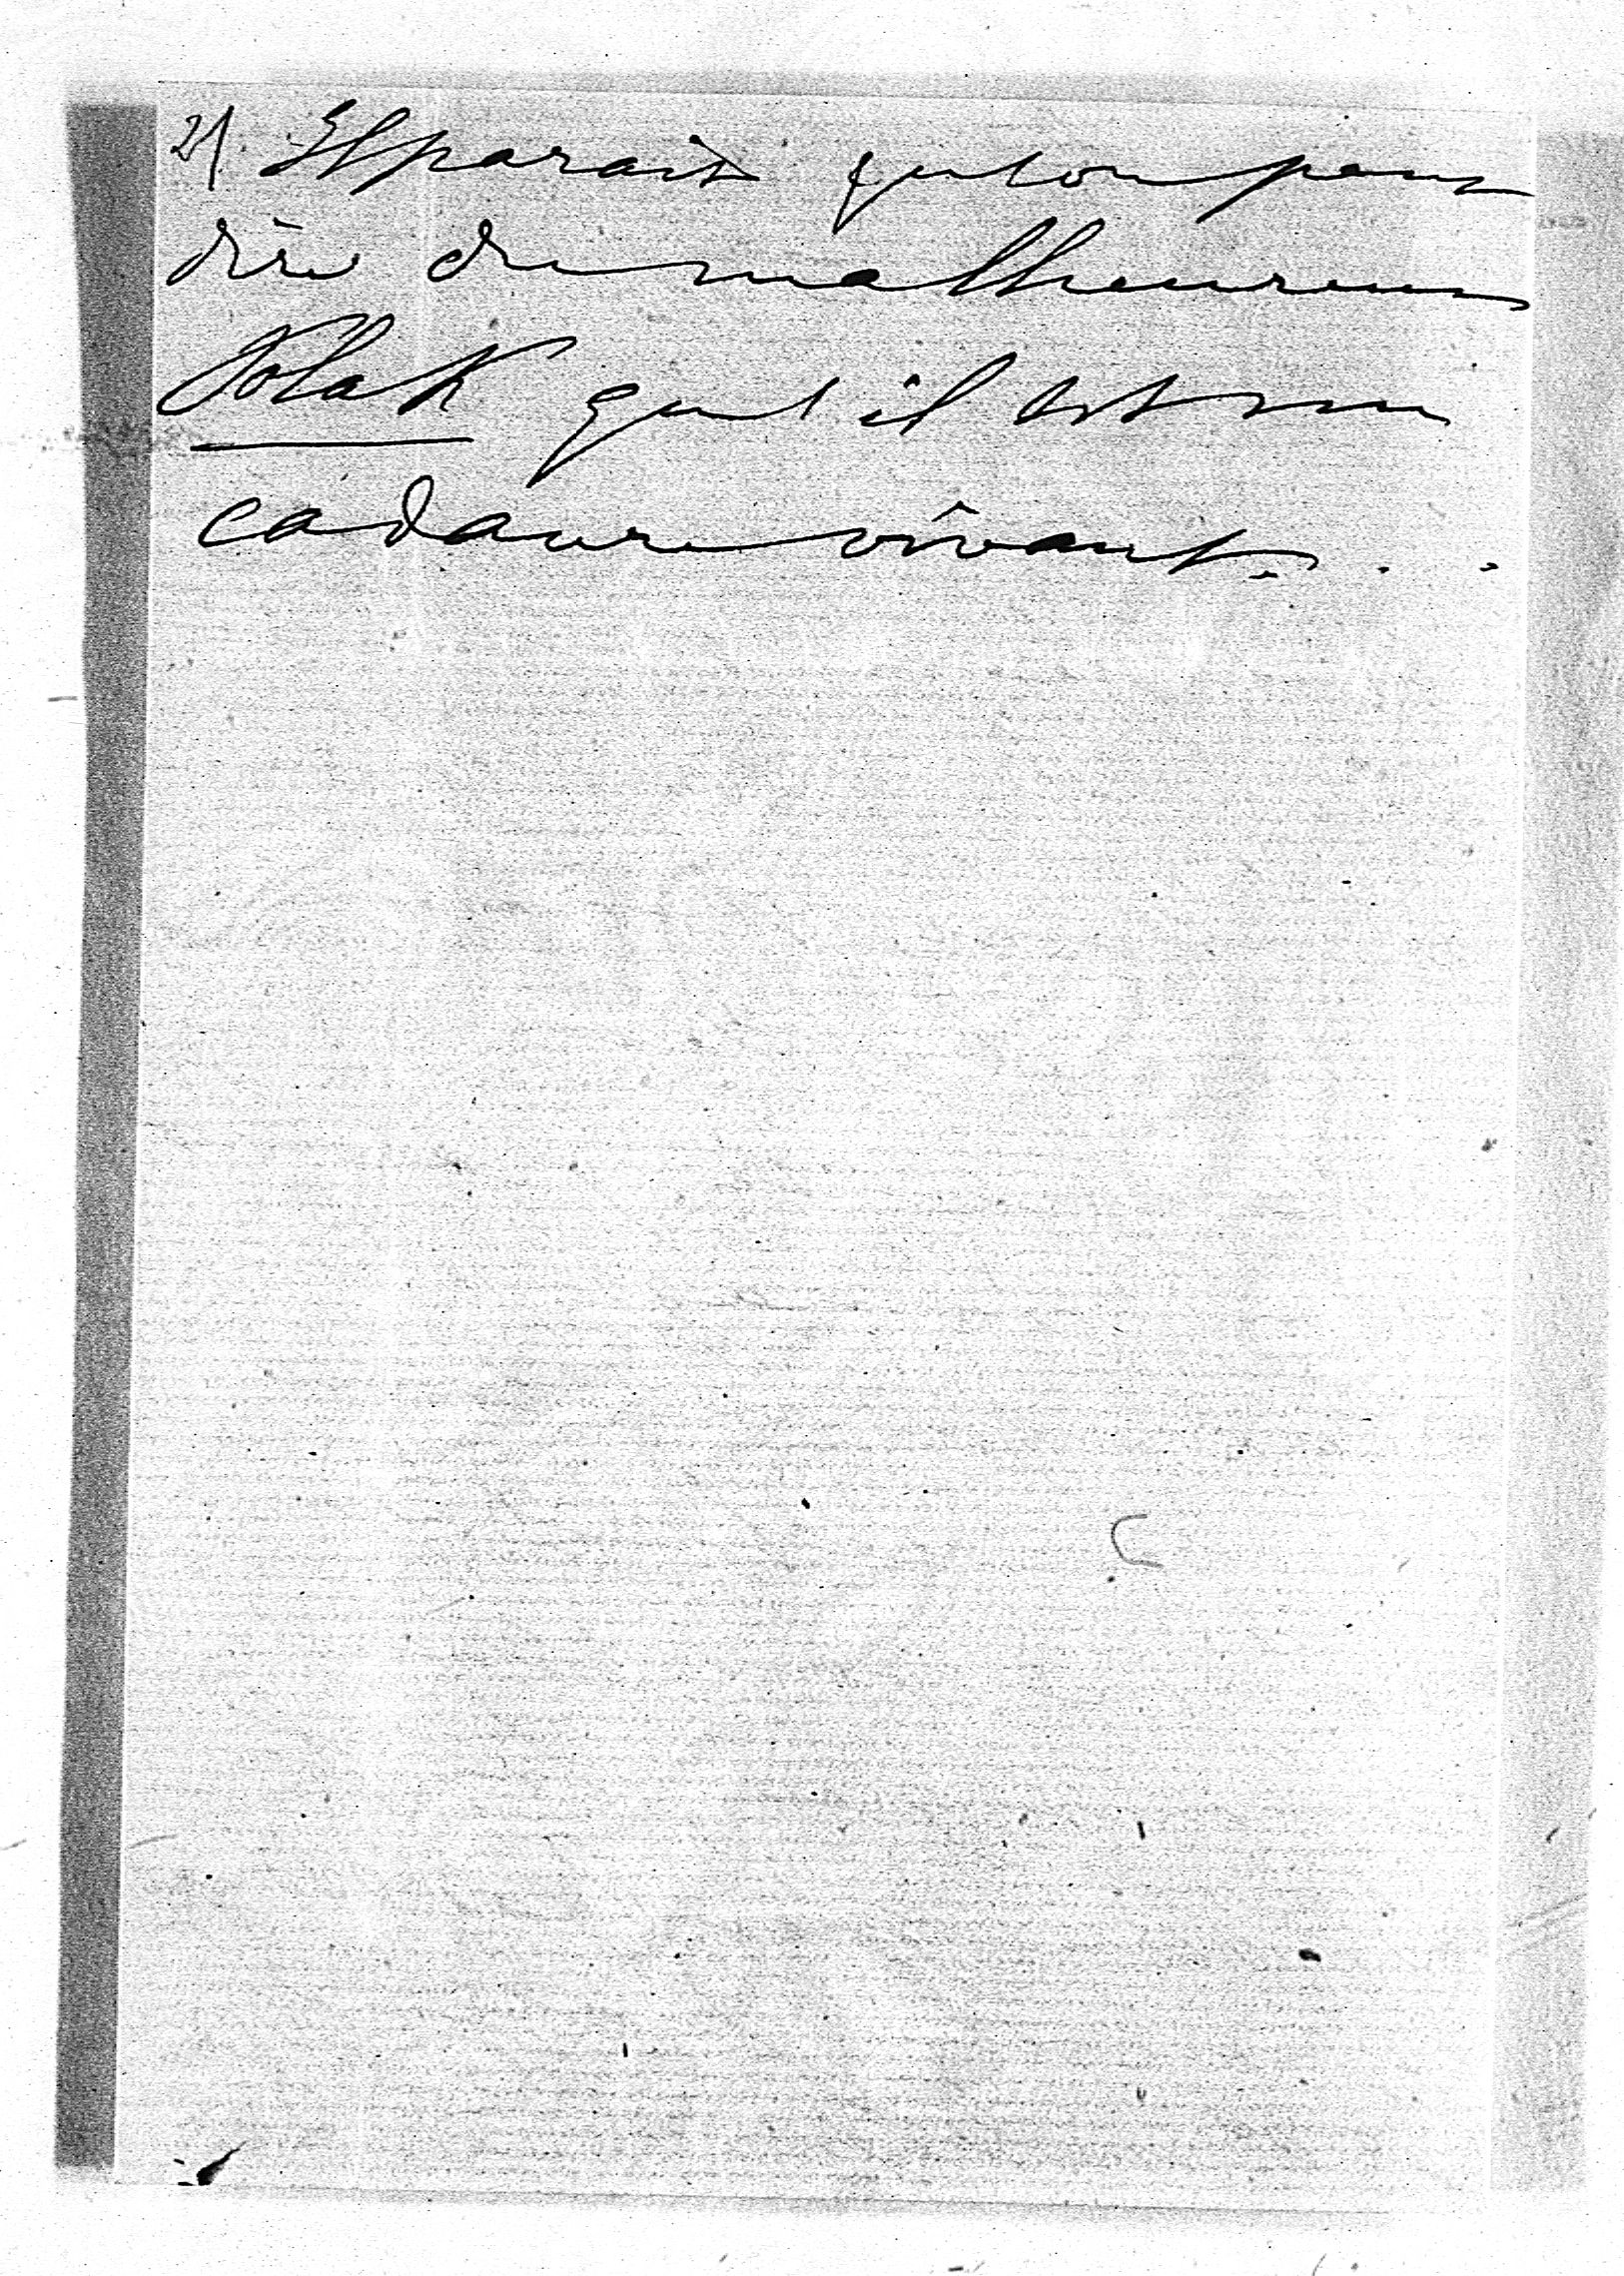 2) Il parait que l'on peut
dire du malheureux
Polak qu'il est un
cadavre vivant...